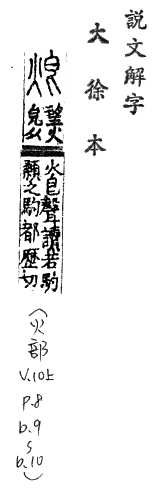 說文解字
大徐本
望火
皃从
火皀聲讀若馰
顙之馰都歴切
(火部
V.10上
P.8
b.9
S
b.10)